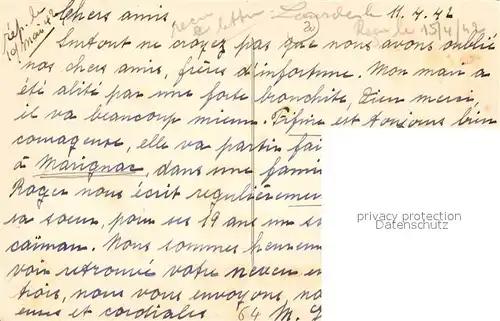 Chers amis Lourdes le 11.4.42
rép. le 10 Mai 42
reçu lettre
Reçu le 15/4/42
Surtout ne croyez pas que nous avons oublié
nos chers amis, frères d'infortune. Mon mari a
été alité par une forte bronchite, Dieu merci,
il va beaucoup mieux. Fifine est toujours bien
courageuse, elle va partir fai
à Marignac, dans une fami
Roger nous écrit regulièremen
sa soeur, pour ses 19 ans un s
caïman. Nous sommes heureu
voir retrouvé votre neveu e
trois, nous vous envoyons, no
et cordiales 64 M.
privacy protection
Datenschutz